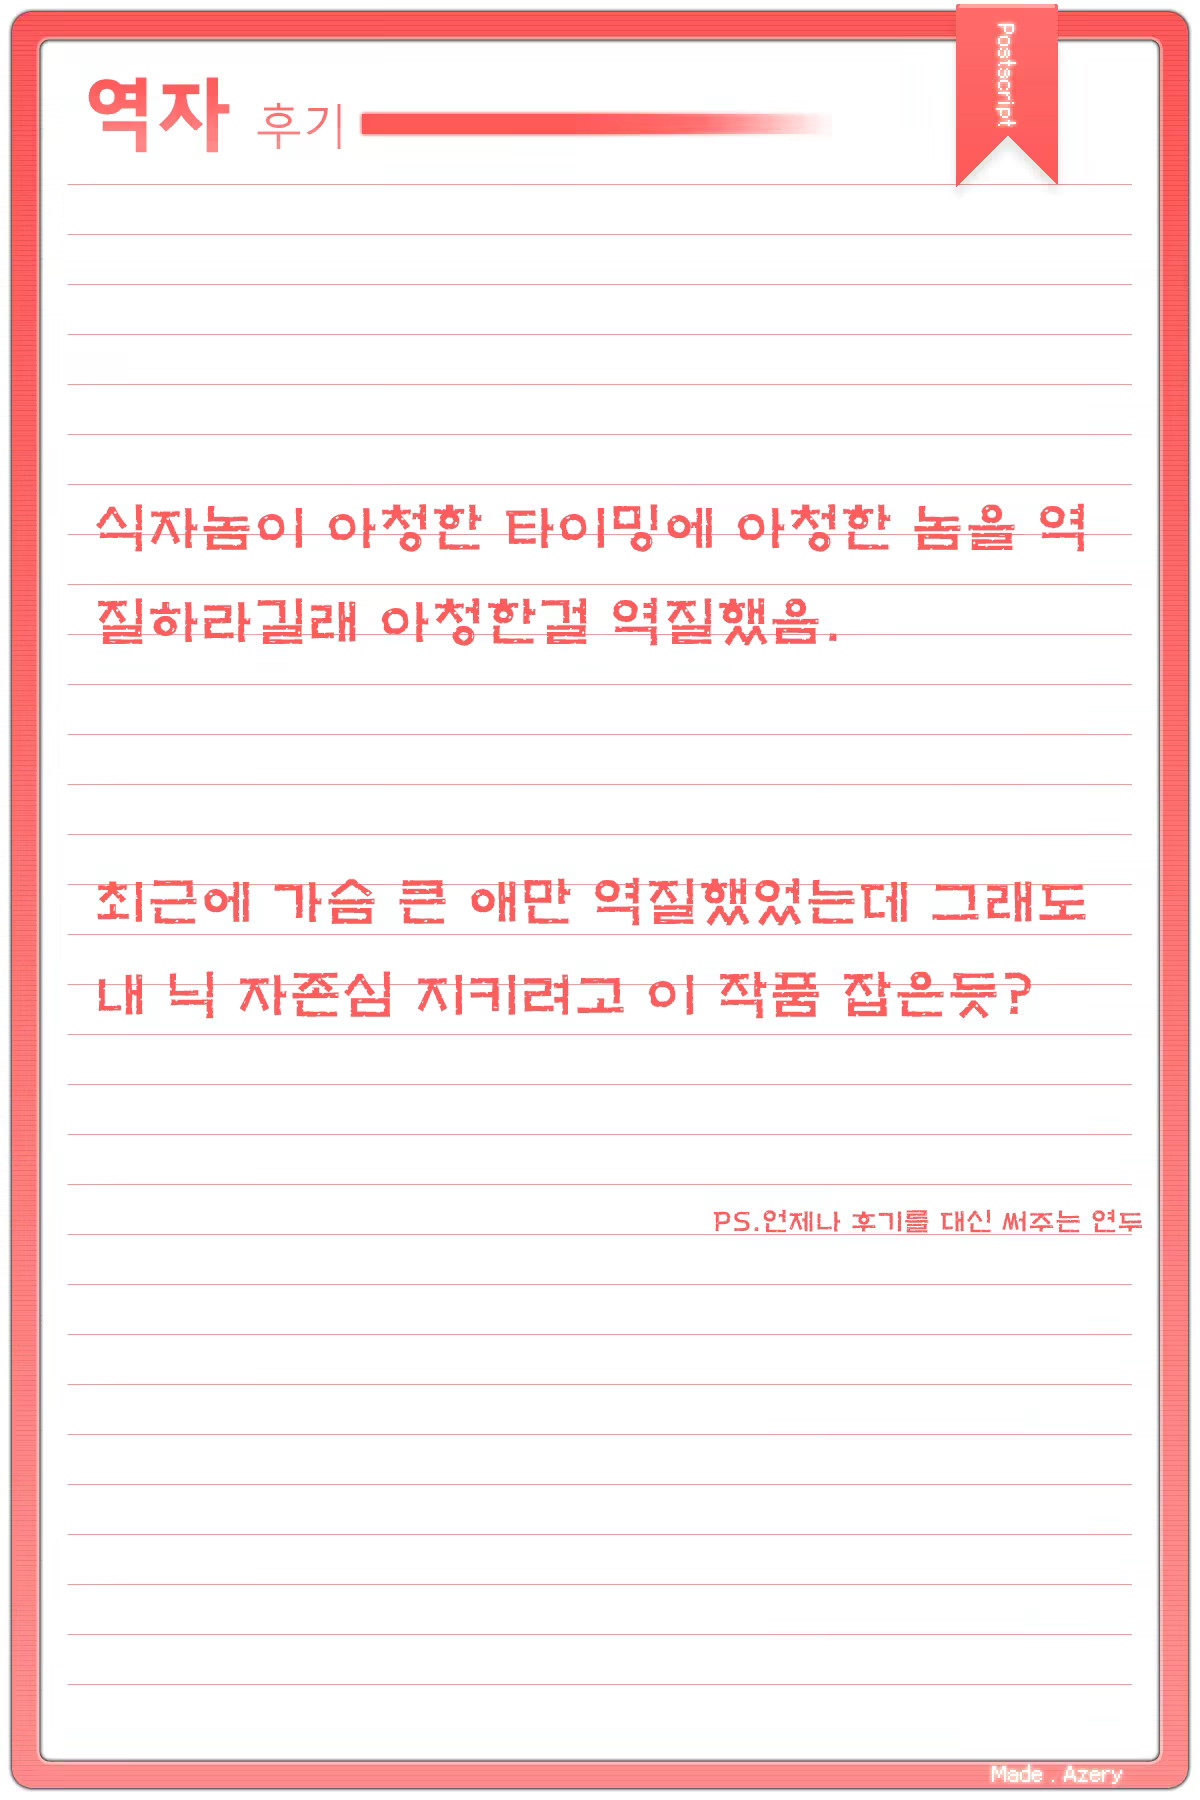 역자 후기
Postscript
식자놈이 아청한 타이밍에 아청한 놈을 역
질하라길래 아청한걸 역질했음.
최근에 가슴 큰 애만 역질했었는데 그래도
내 닉 자존심 지키려고 이 작품 잡은듯?
PS.언제나 후기를 대신 써주는 연두
Made . Azery